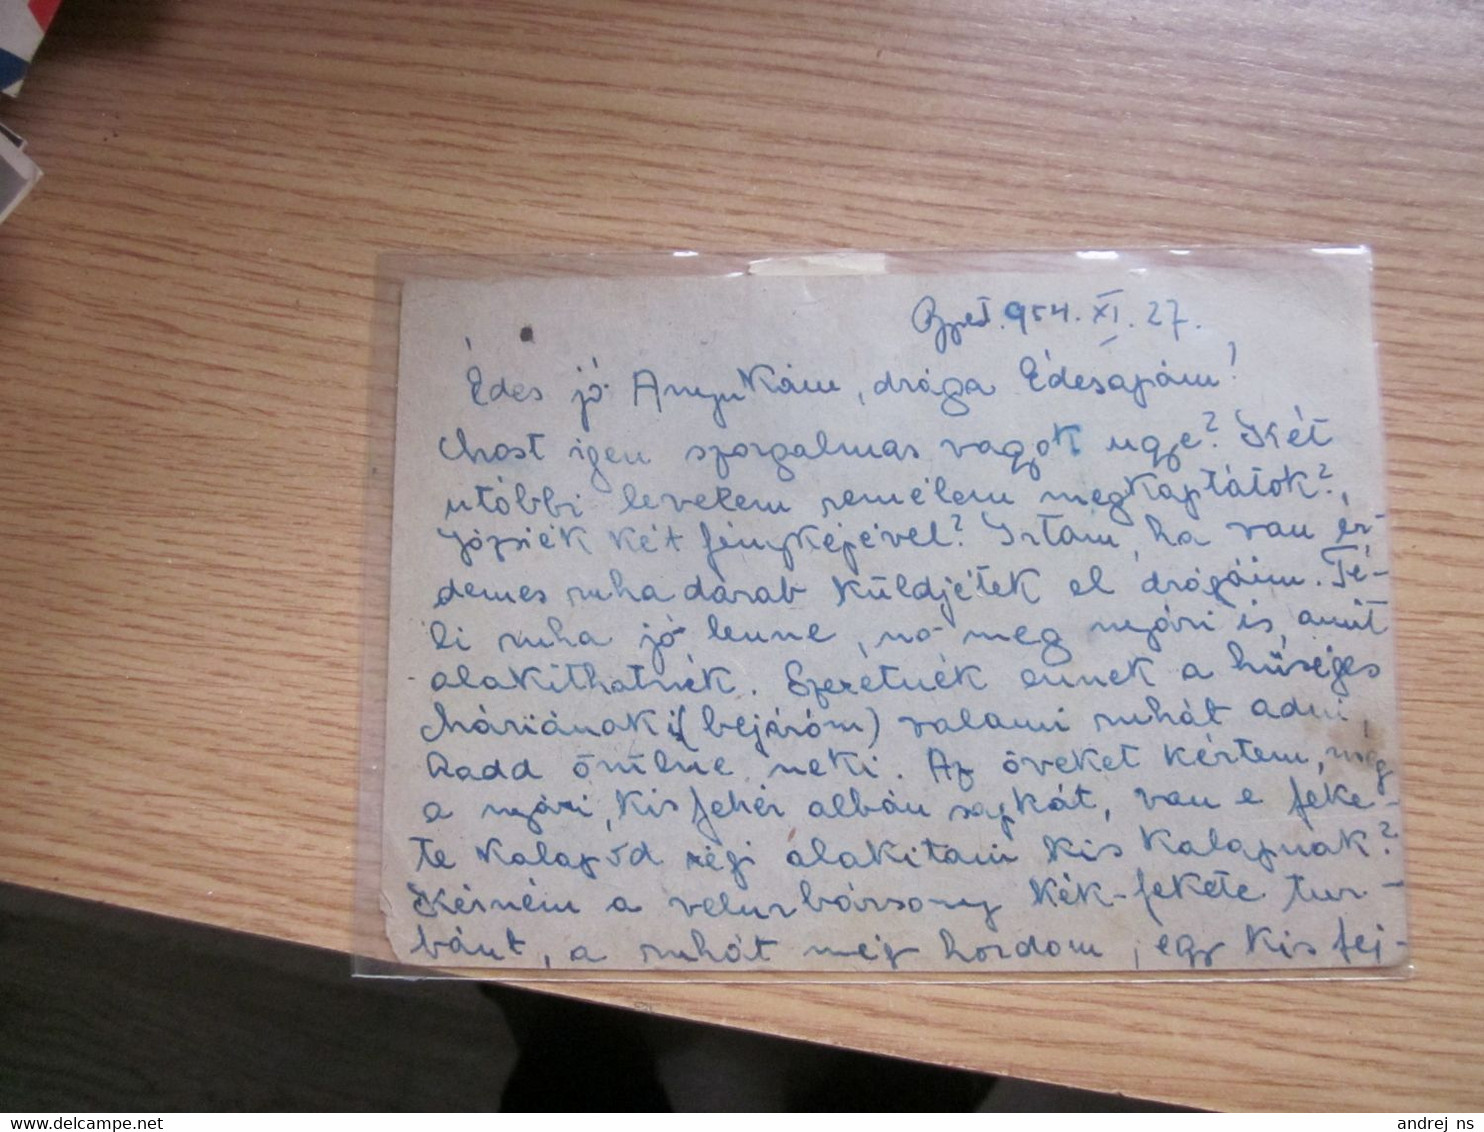 Bpest. 954. XI. 27.
Édes jó Anyukám, drága Édesapám!
Most igen szorgalmas vagyok ugye? Két
utóbbi levelem remélem megkaptátok?,
Józsiék két fényképével? Irtam, ha van ér-
demes ruha darab küldjétek el drágáim. Té-
li ruha jó lenne, no meg nyári is, amit
alakithatnék. Szeretnék ennek a hűséges
Máriának (bejáróm) valami ruhát adni,
hadd örülne neki. Az öveket kértem, még
a nyári, kis fehér albán sapkát, van e feke-
te kalapod régi alakitani kis kalapnak?
Kérném a velurbársony kék-fekete tur-
bánt, a ruhát még hordom, egy kis fej-
andrej_ns
www.delcampe.net